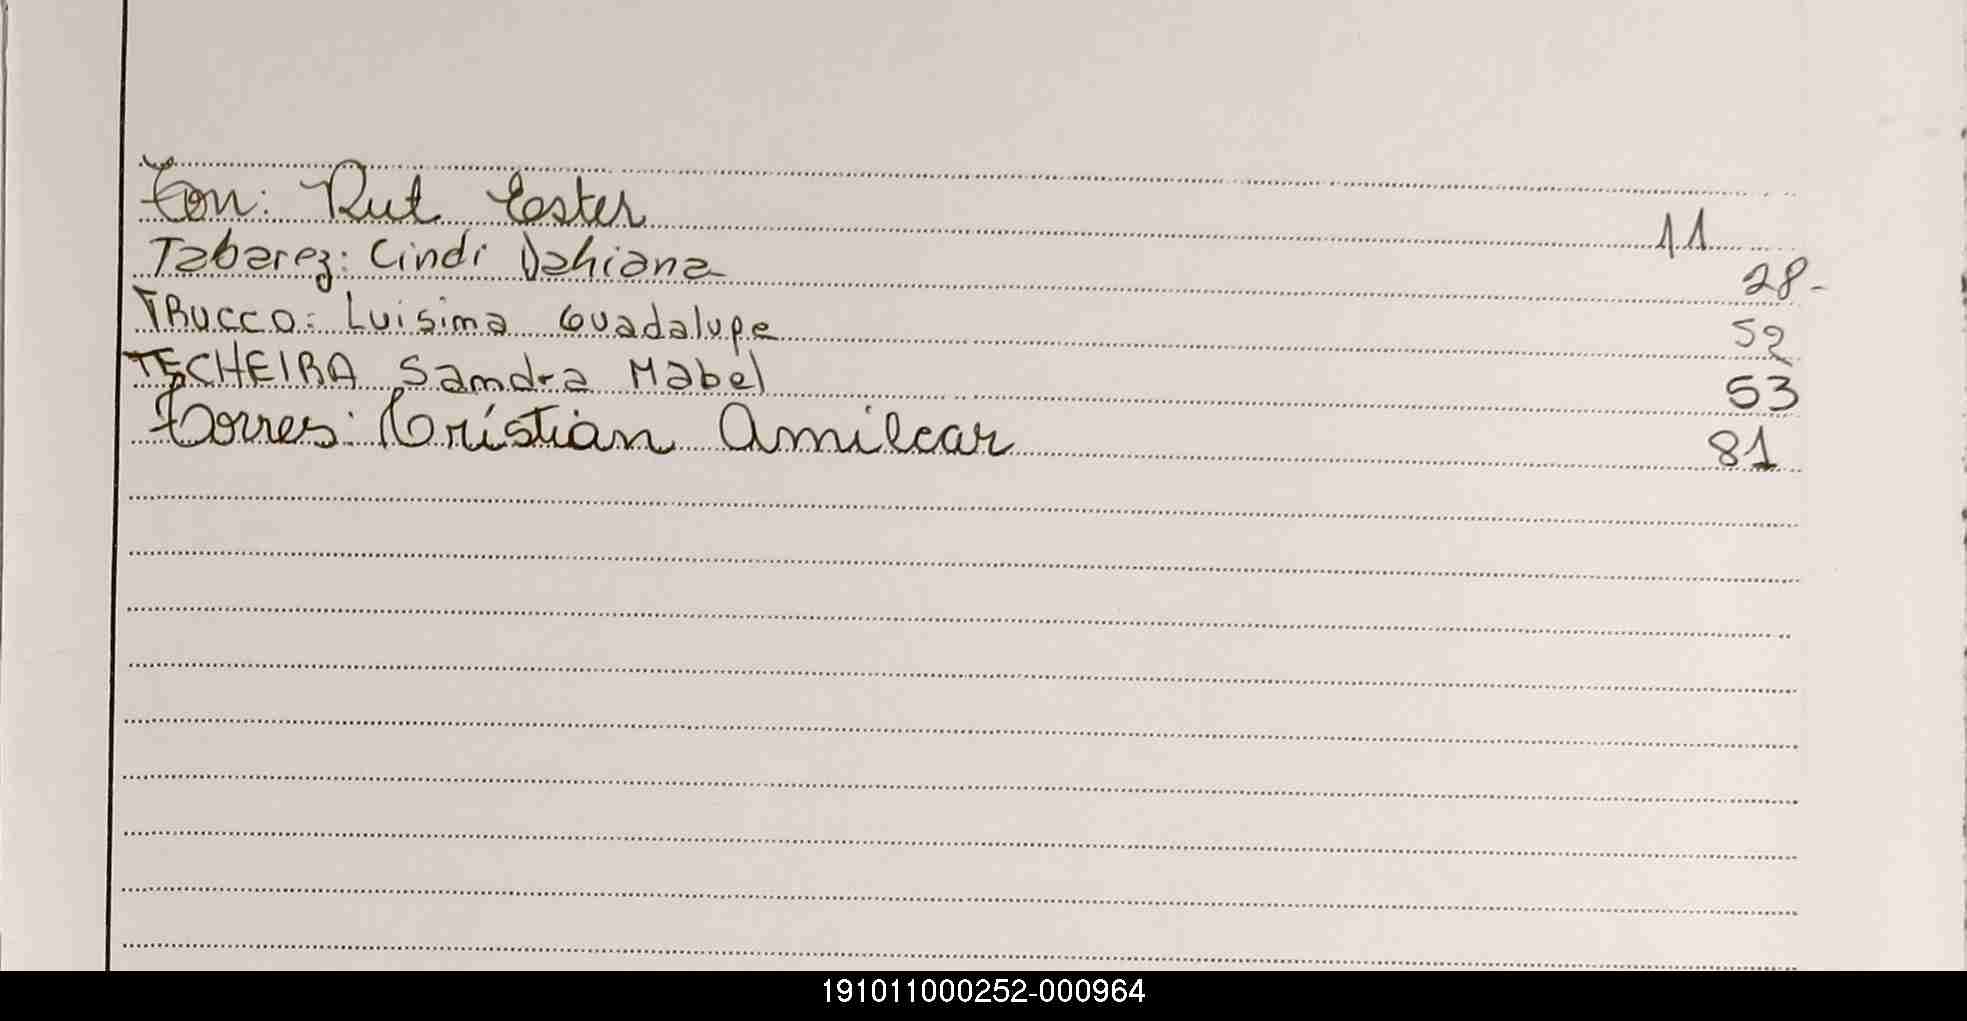 Ton: Rut Ester 11
Tabarez: Cindi Dahiana 28-
TRUCCO: Luisima Guadalupe 52
TECHEIRA Samdra Mabel 53
Torres: Cristian Amilcar 81
191011000252-000964